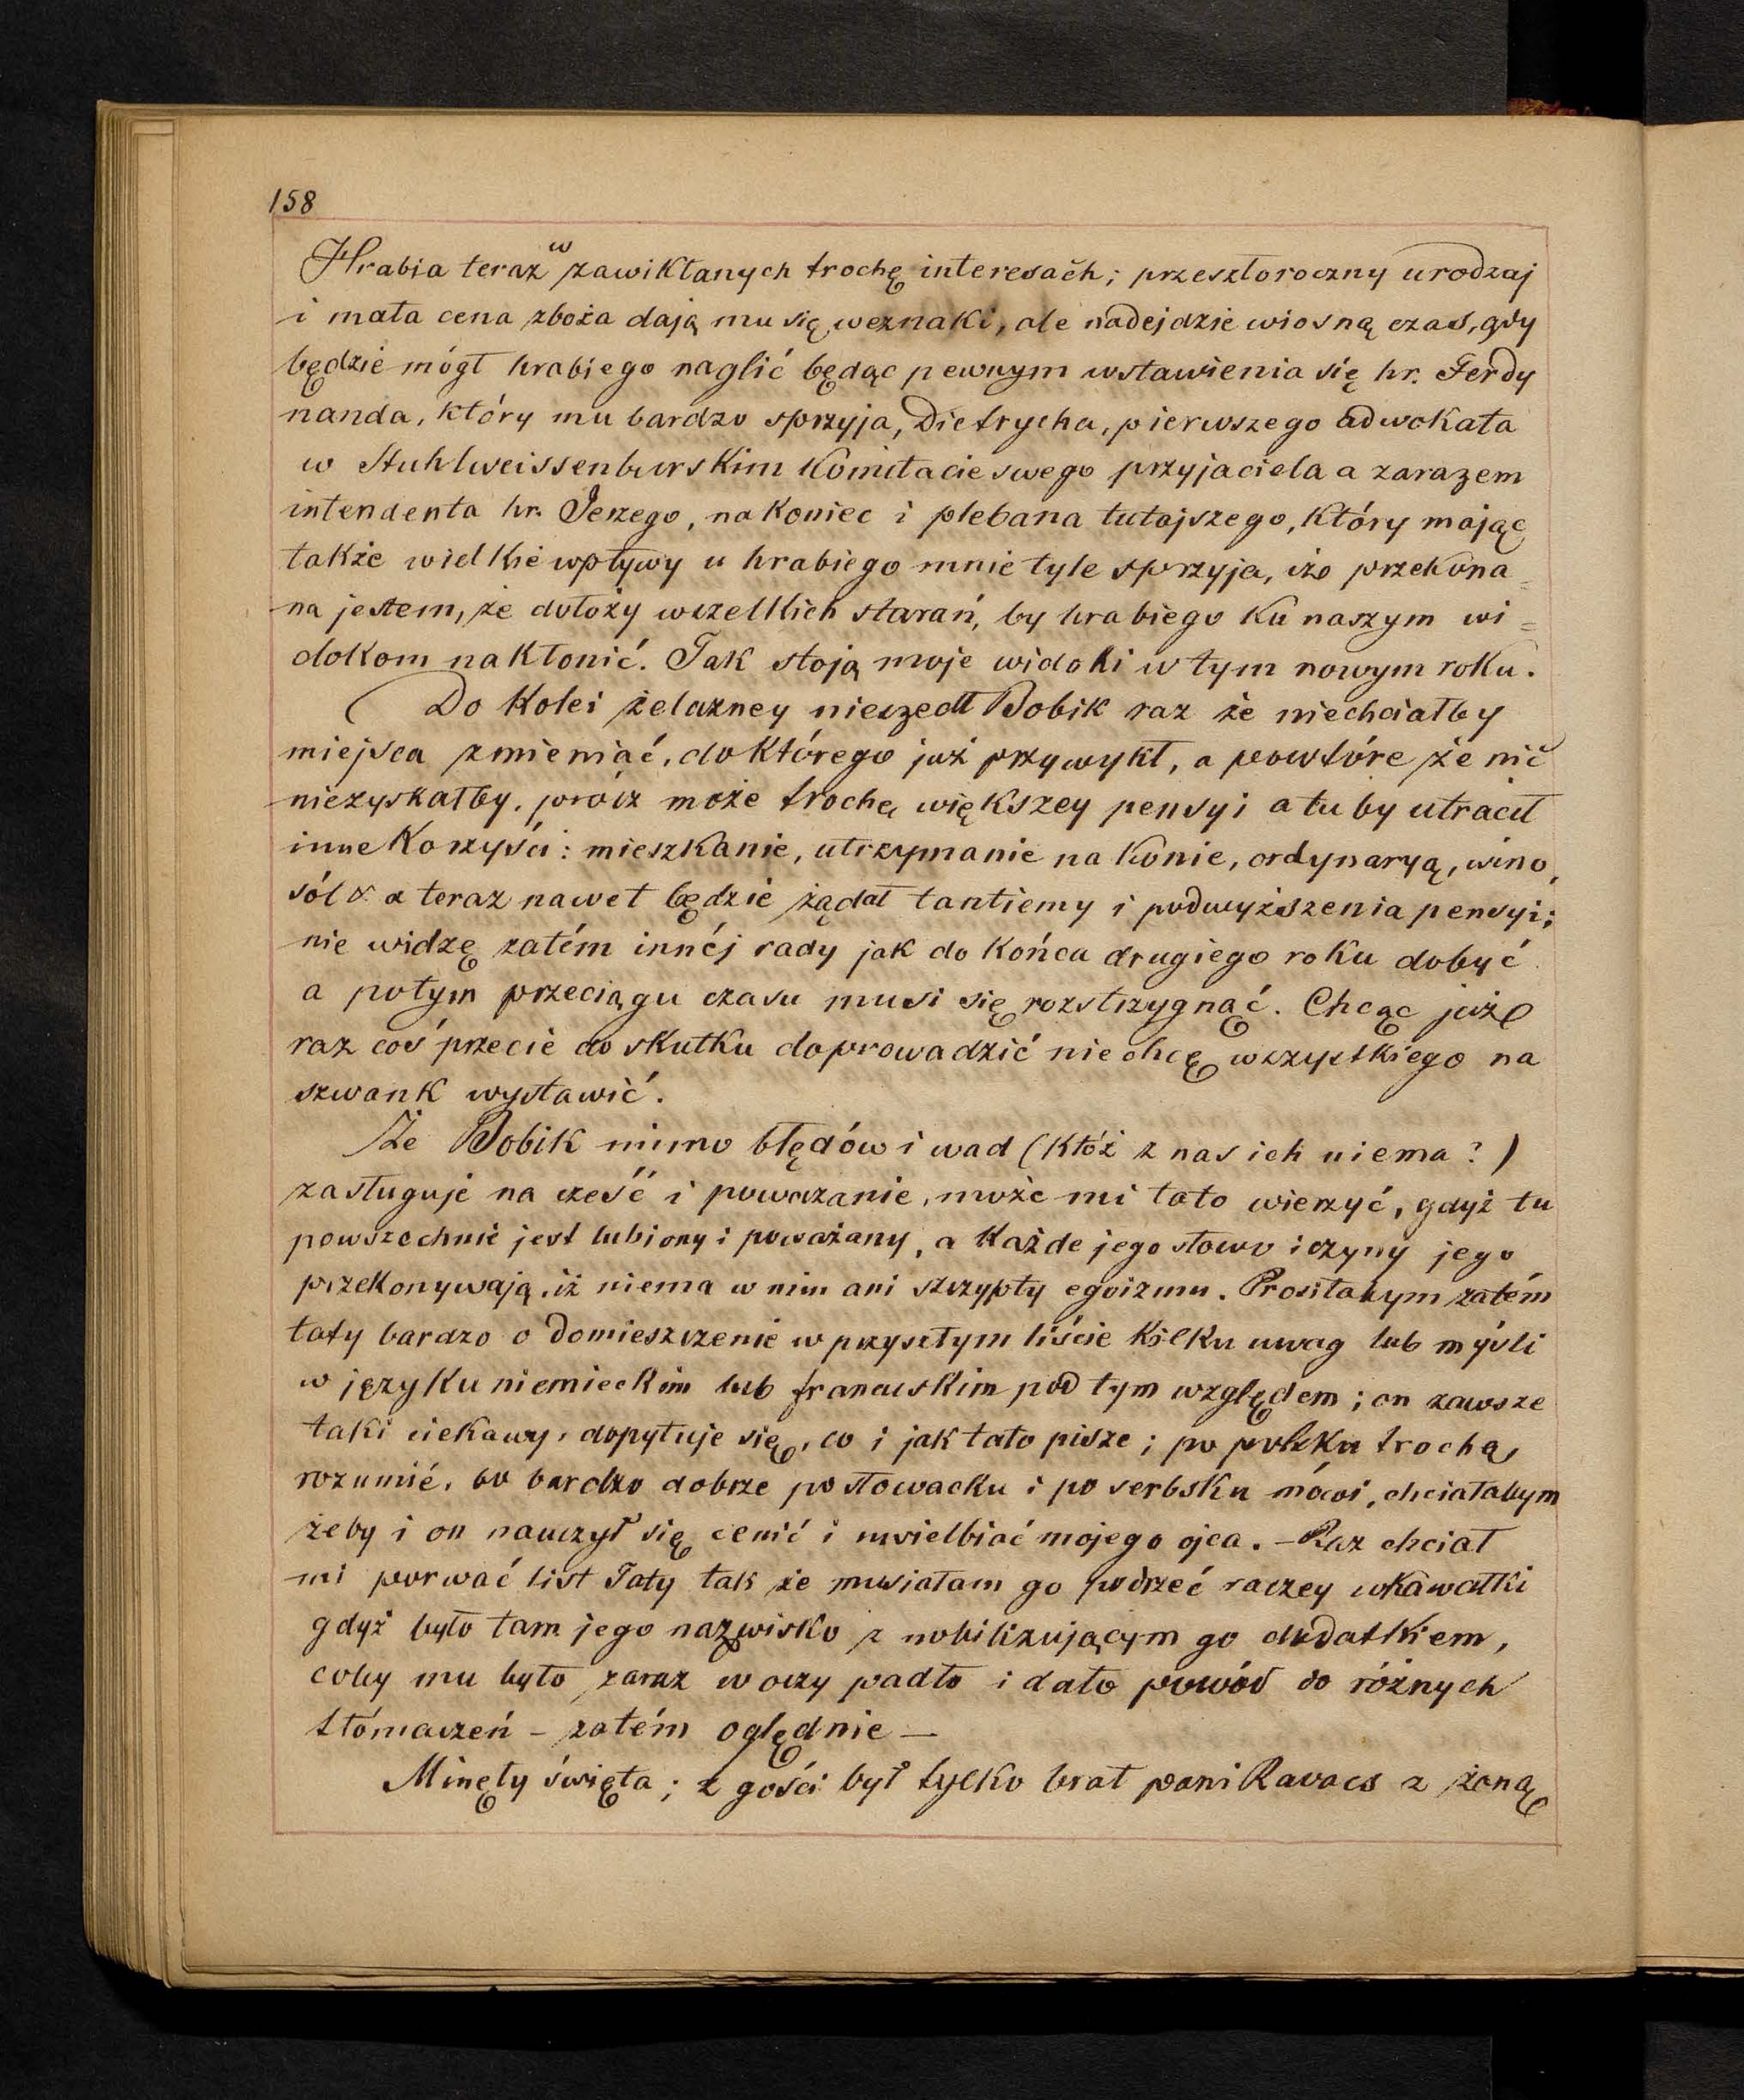 158
Hrabia teraz w zawikłanych trochę interesach; przeszłoroczny urodzaj
i mała cena zboża dają mu się weznaki, ale nadejdzie wiosną czas, gdy
będzie mógł hrabiego naglić będąc pewnym wstawienia się hr. Ferdy
nanda, który mu bardzo sprzyja, Dietrycha, pierwszego adwokata
w Stuhlweissenburskim Komitacie swego przyjaciela a zarazem
intendenta hr. Jerzego, nakoniec i plebana tutajszego, który mając
także wielkie wpływy u hrabiego mnie tyle sprzyja, iż przekona=
na jestem, że dołoży wszelkich starań, by hrabiego ku naszym wi=
dokom nakłonić. Tak stoją moje widoki w tym nowym roku.
Do Kolei żelazney nieszedł Bobik raz że niechciałby
miejsca zmieniać, do którego już przywykł, a powtóre że nic
niezyskałby, prócz może trochę większey pensyi a tu by utracił
inne Korzyści: mieszkanie, utrzymanie na konie, ordynaryą, wino,
sól & a teraz nawet będzie żądał tantiemy i podwyższenia pensyi;
nie widzę zatém innéj rady jak do końca drugiego roku dobyć
a potym przeciągu czasu musi się rozstrzygnąć. Chcąc już
raz coś przecie do skutku doprowadzić niechcę wszystkiego na
szwank wystawić.
Że Bobik mimo błędów i wad (któż z nas ich niema?)
zasługuje na cześć i poważanie, może mi tato wierzyć, gdyż tu
powszechnie jest lubiony i poważany, a każde jego słowo i czyny jego
przekonywają, iż niema w nim ani szczypty egoizmu. Prosiłabym zatém
taty bardzo o domieszczenie w przyszłym liście kilku uwag lub myśli
w języku niemieckim lub francuskim pod tym względem; on zawsze
taki ciekawy, dopytuje się, co i jak tato pisze; po polsku trochę
rozumié, bo bardzo dobrze po słowacku i po serbsku mówi, chciałabym
żeby i on nauczył się cenić i uwielbiać mojego ojca. - Raz chciał
mi porwać list Taty tak że musiałam go podrzeć raczey w kawałki
gdyż było tam jego nazwisko z nobilizującym go dodatkiem,
coby mu było zaraz w oczy padło i dało powód do różnych
tłómaczeń - zatém oględnie —
Minęły święta; z gości był tylko brat pani Ravacs z żoną